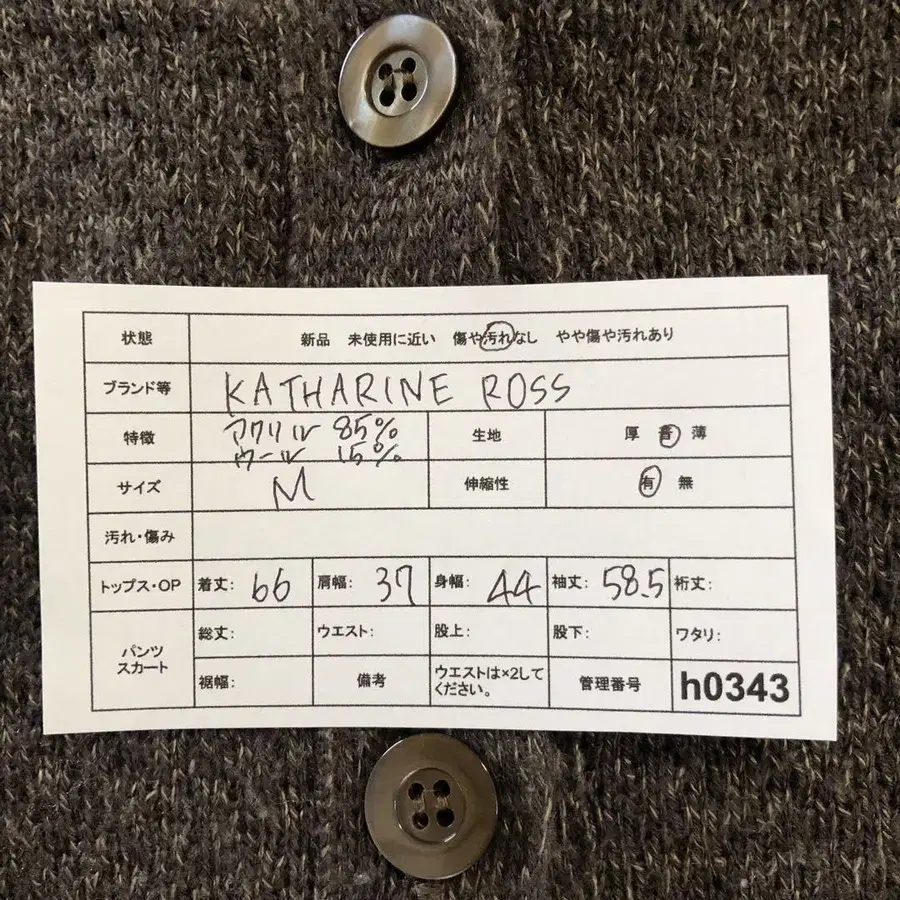 状態 新品 未使用に近い 傷や汚れなし やや傷や汚れあり
ブランド等 KATHARINE ROSS
特徴 アクリル 85% ウール 15% 生地 厚 普 薄
サイズ M 伸縮性 有 無
汚れ・傷み
トップス・OP 着丈: 66 肩幅: 37 身幅: 44 袖丈: 58.5 裄丈:
パンツ スカート
総丈: ウエスト: 股上: 股下: ワタリ:
裾幅: 備考 ウエストは×2してください。 管理番号 h0343